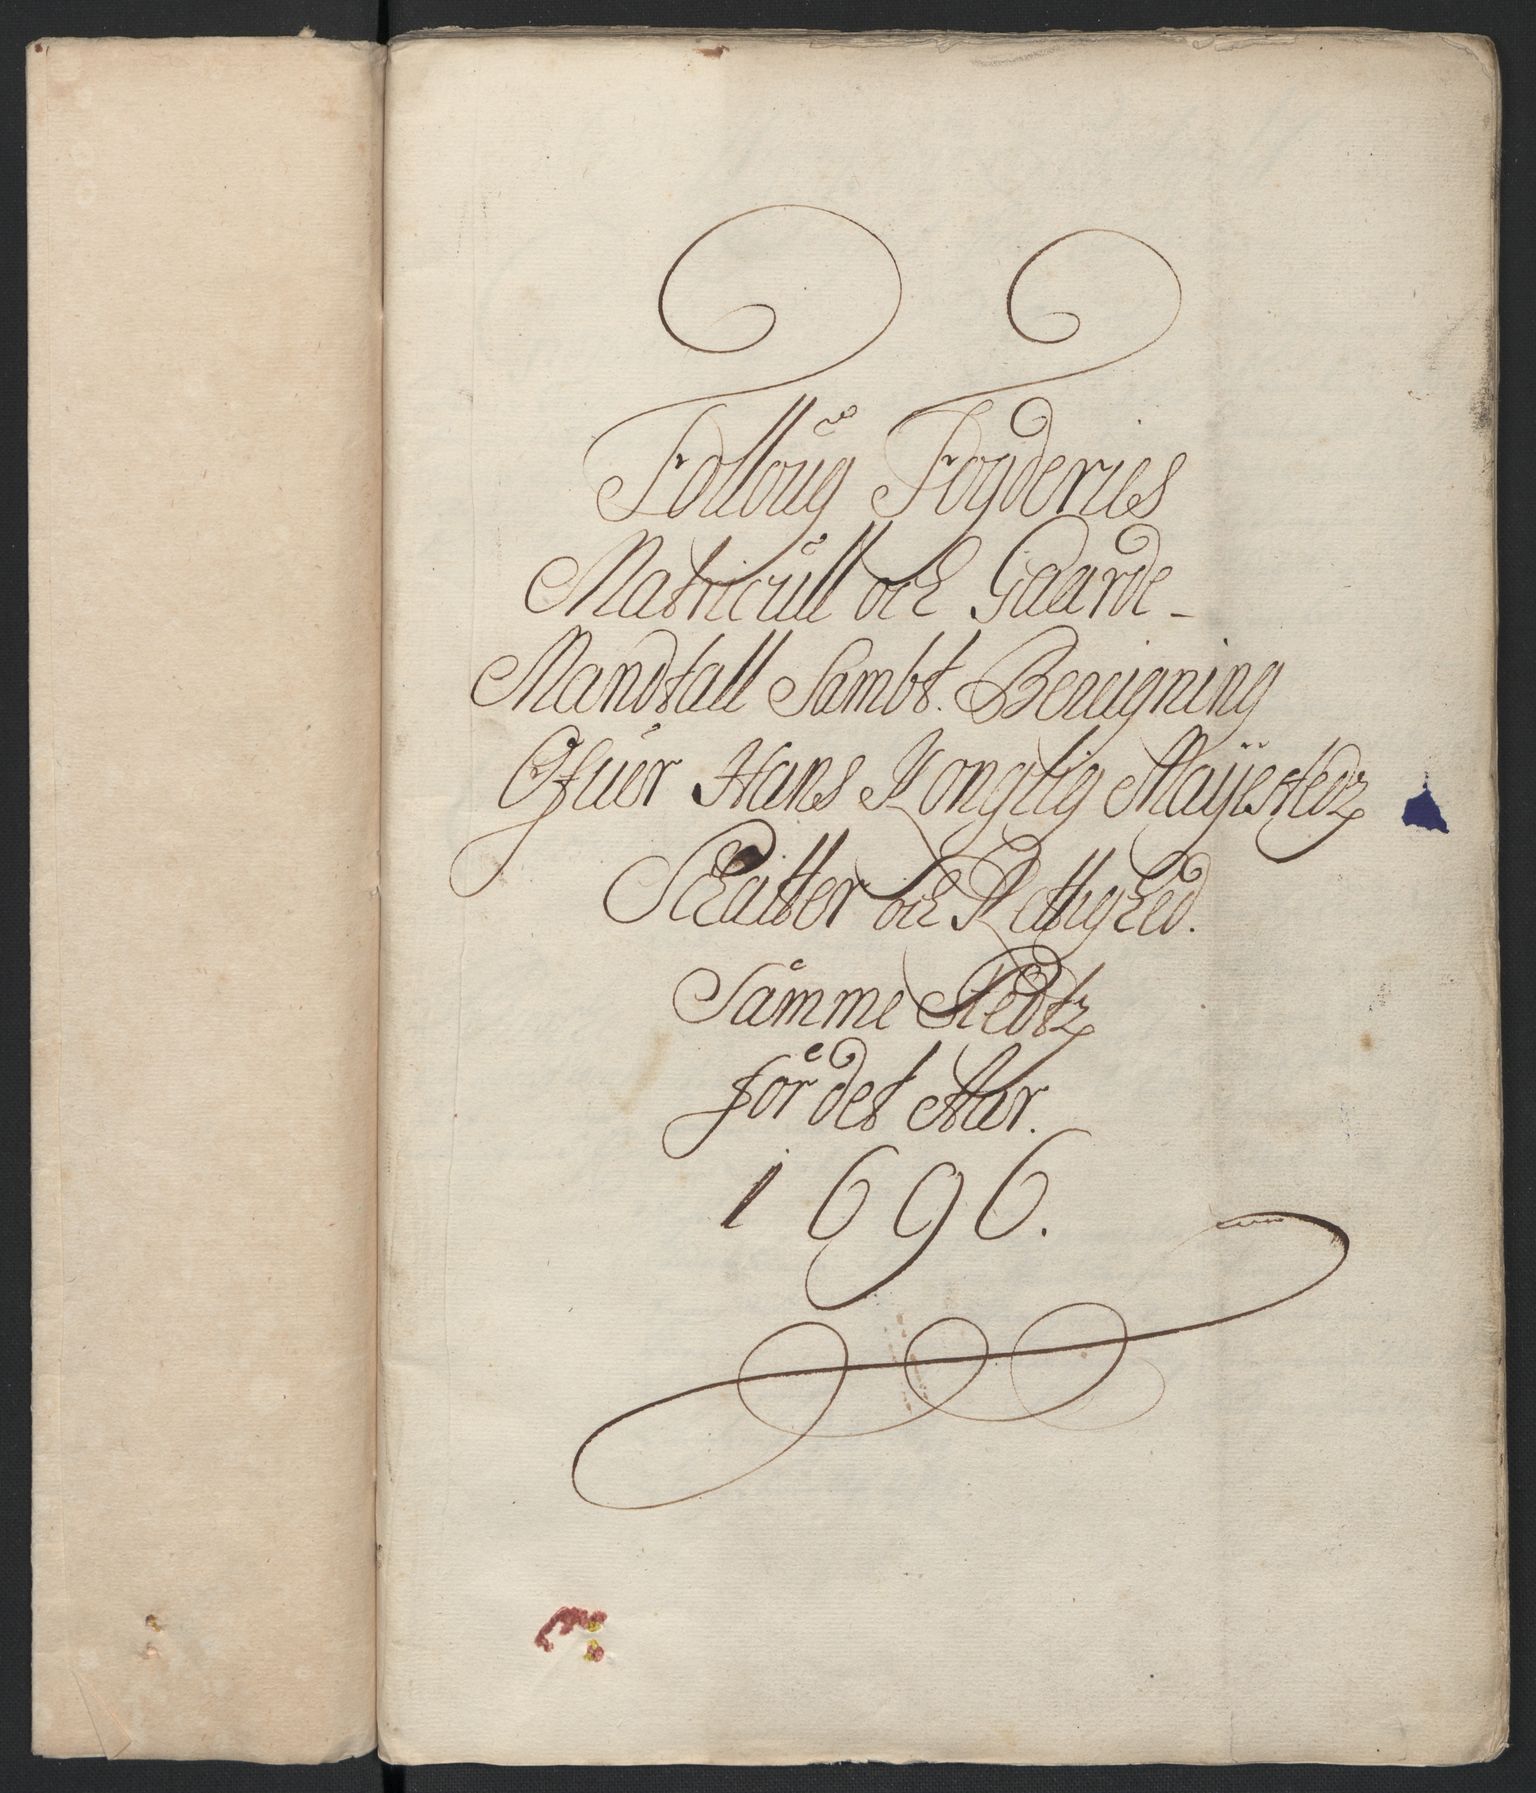 Folloug Fogderies
Matricull och Gaarde-
Mandtall Sambt. Beuigning
Ofuer Hans Konglig Maÿestedz
Schatter och Rettighed.
Samme Stedtz
for det Aar.
1696.